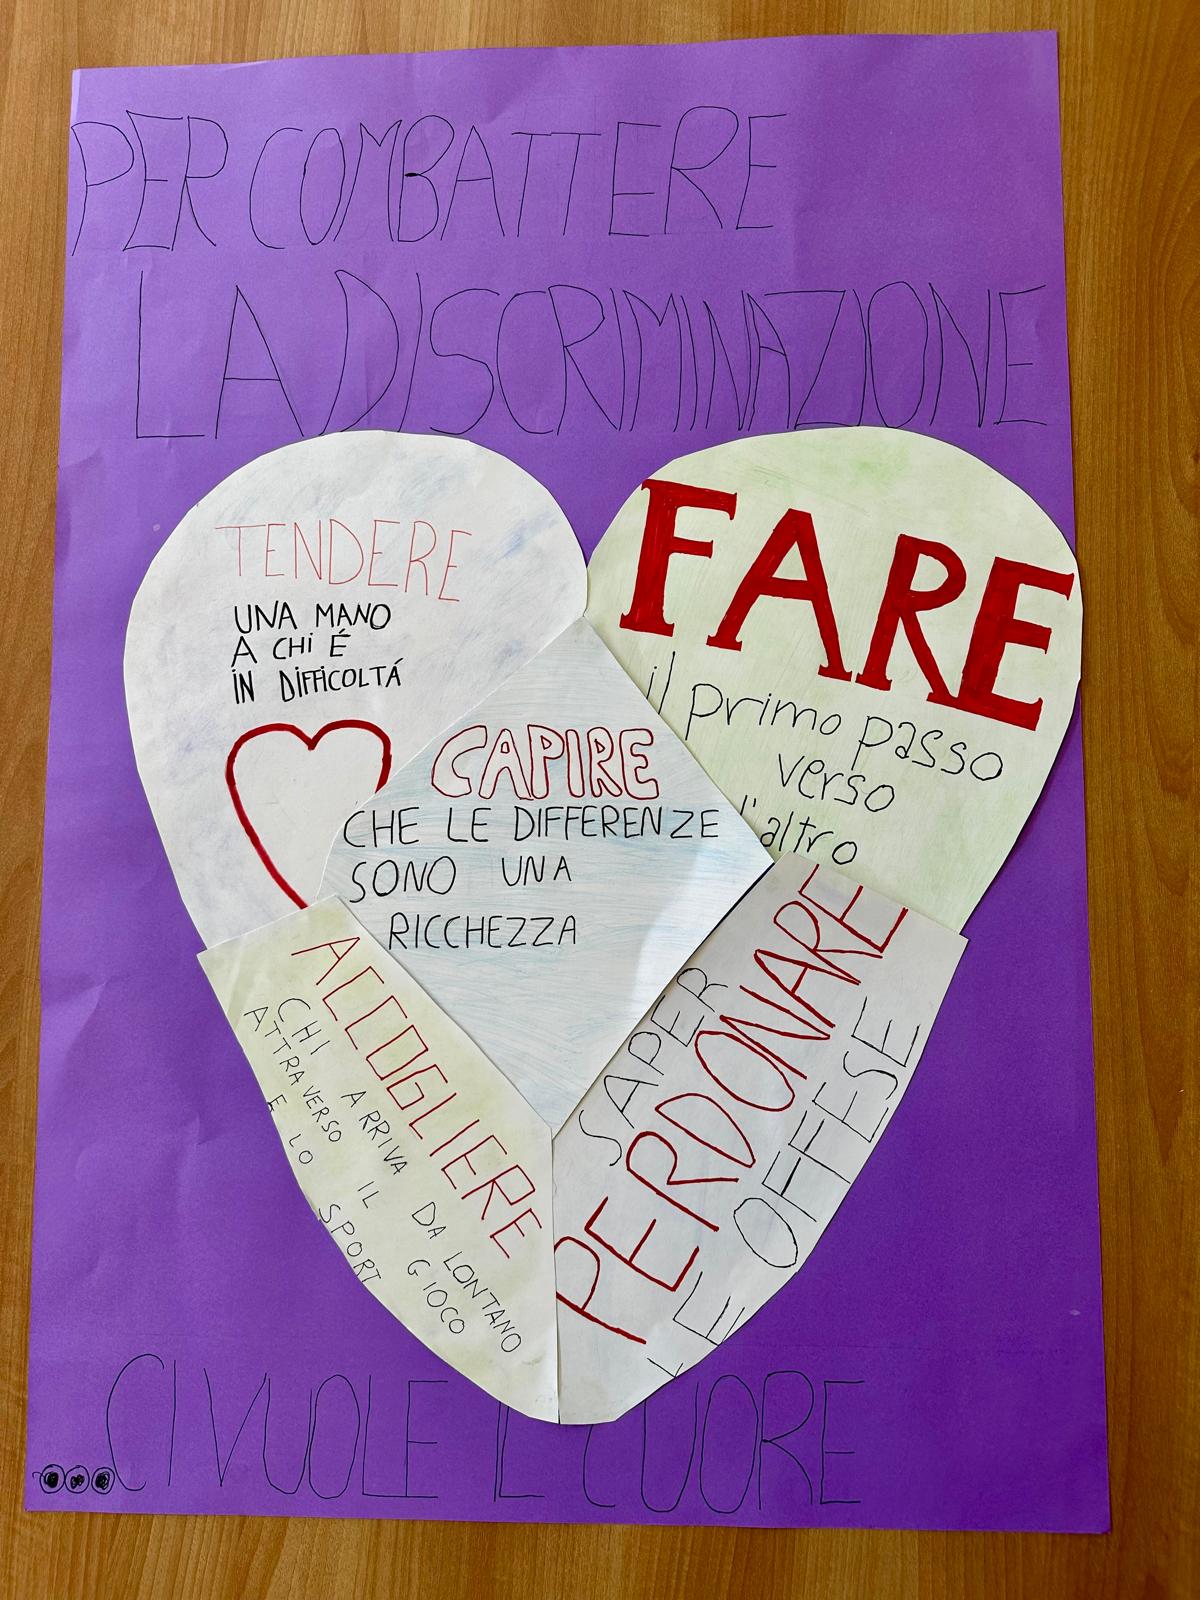 PER COMBATTERE
LA DISCRIMINAZIONE
TENDERE
UNA MANO
A CHI É
IN DIFFICOLTÁ
FARE
il primo passo
verso
l'altro
CAPIRE
CHE LE DIFFERENZE
SONO UNA
RICCHEZZA
ACCOGLIERE
CHI ARRIVA DA LONTANO
ATTRAVERSO IL GIOCO
E LO SPORT
SAPER
PERDONARE
LE OFFESE
... CI VUOLE IL CUORE